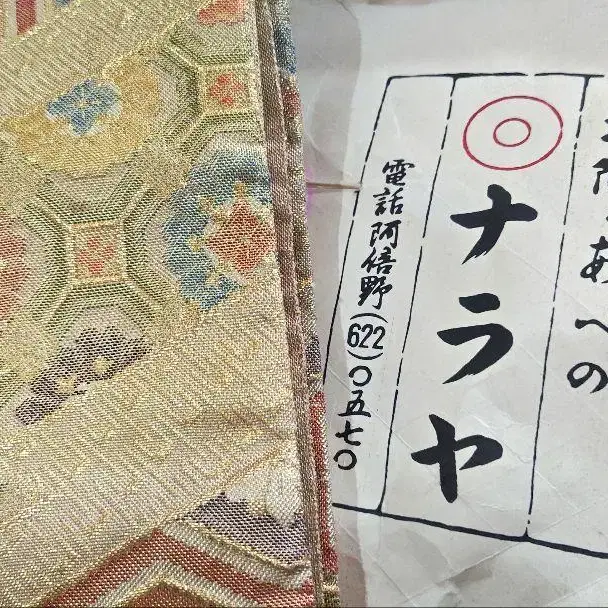 阪あべの
ナラヤ
電話阿倍野(622)〇五七〇